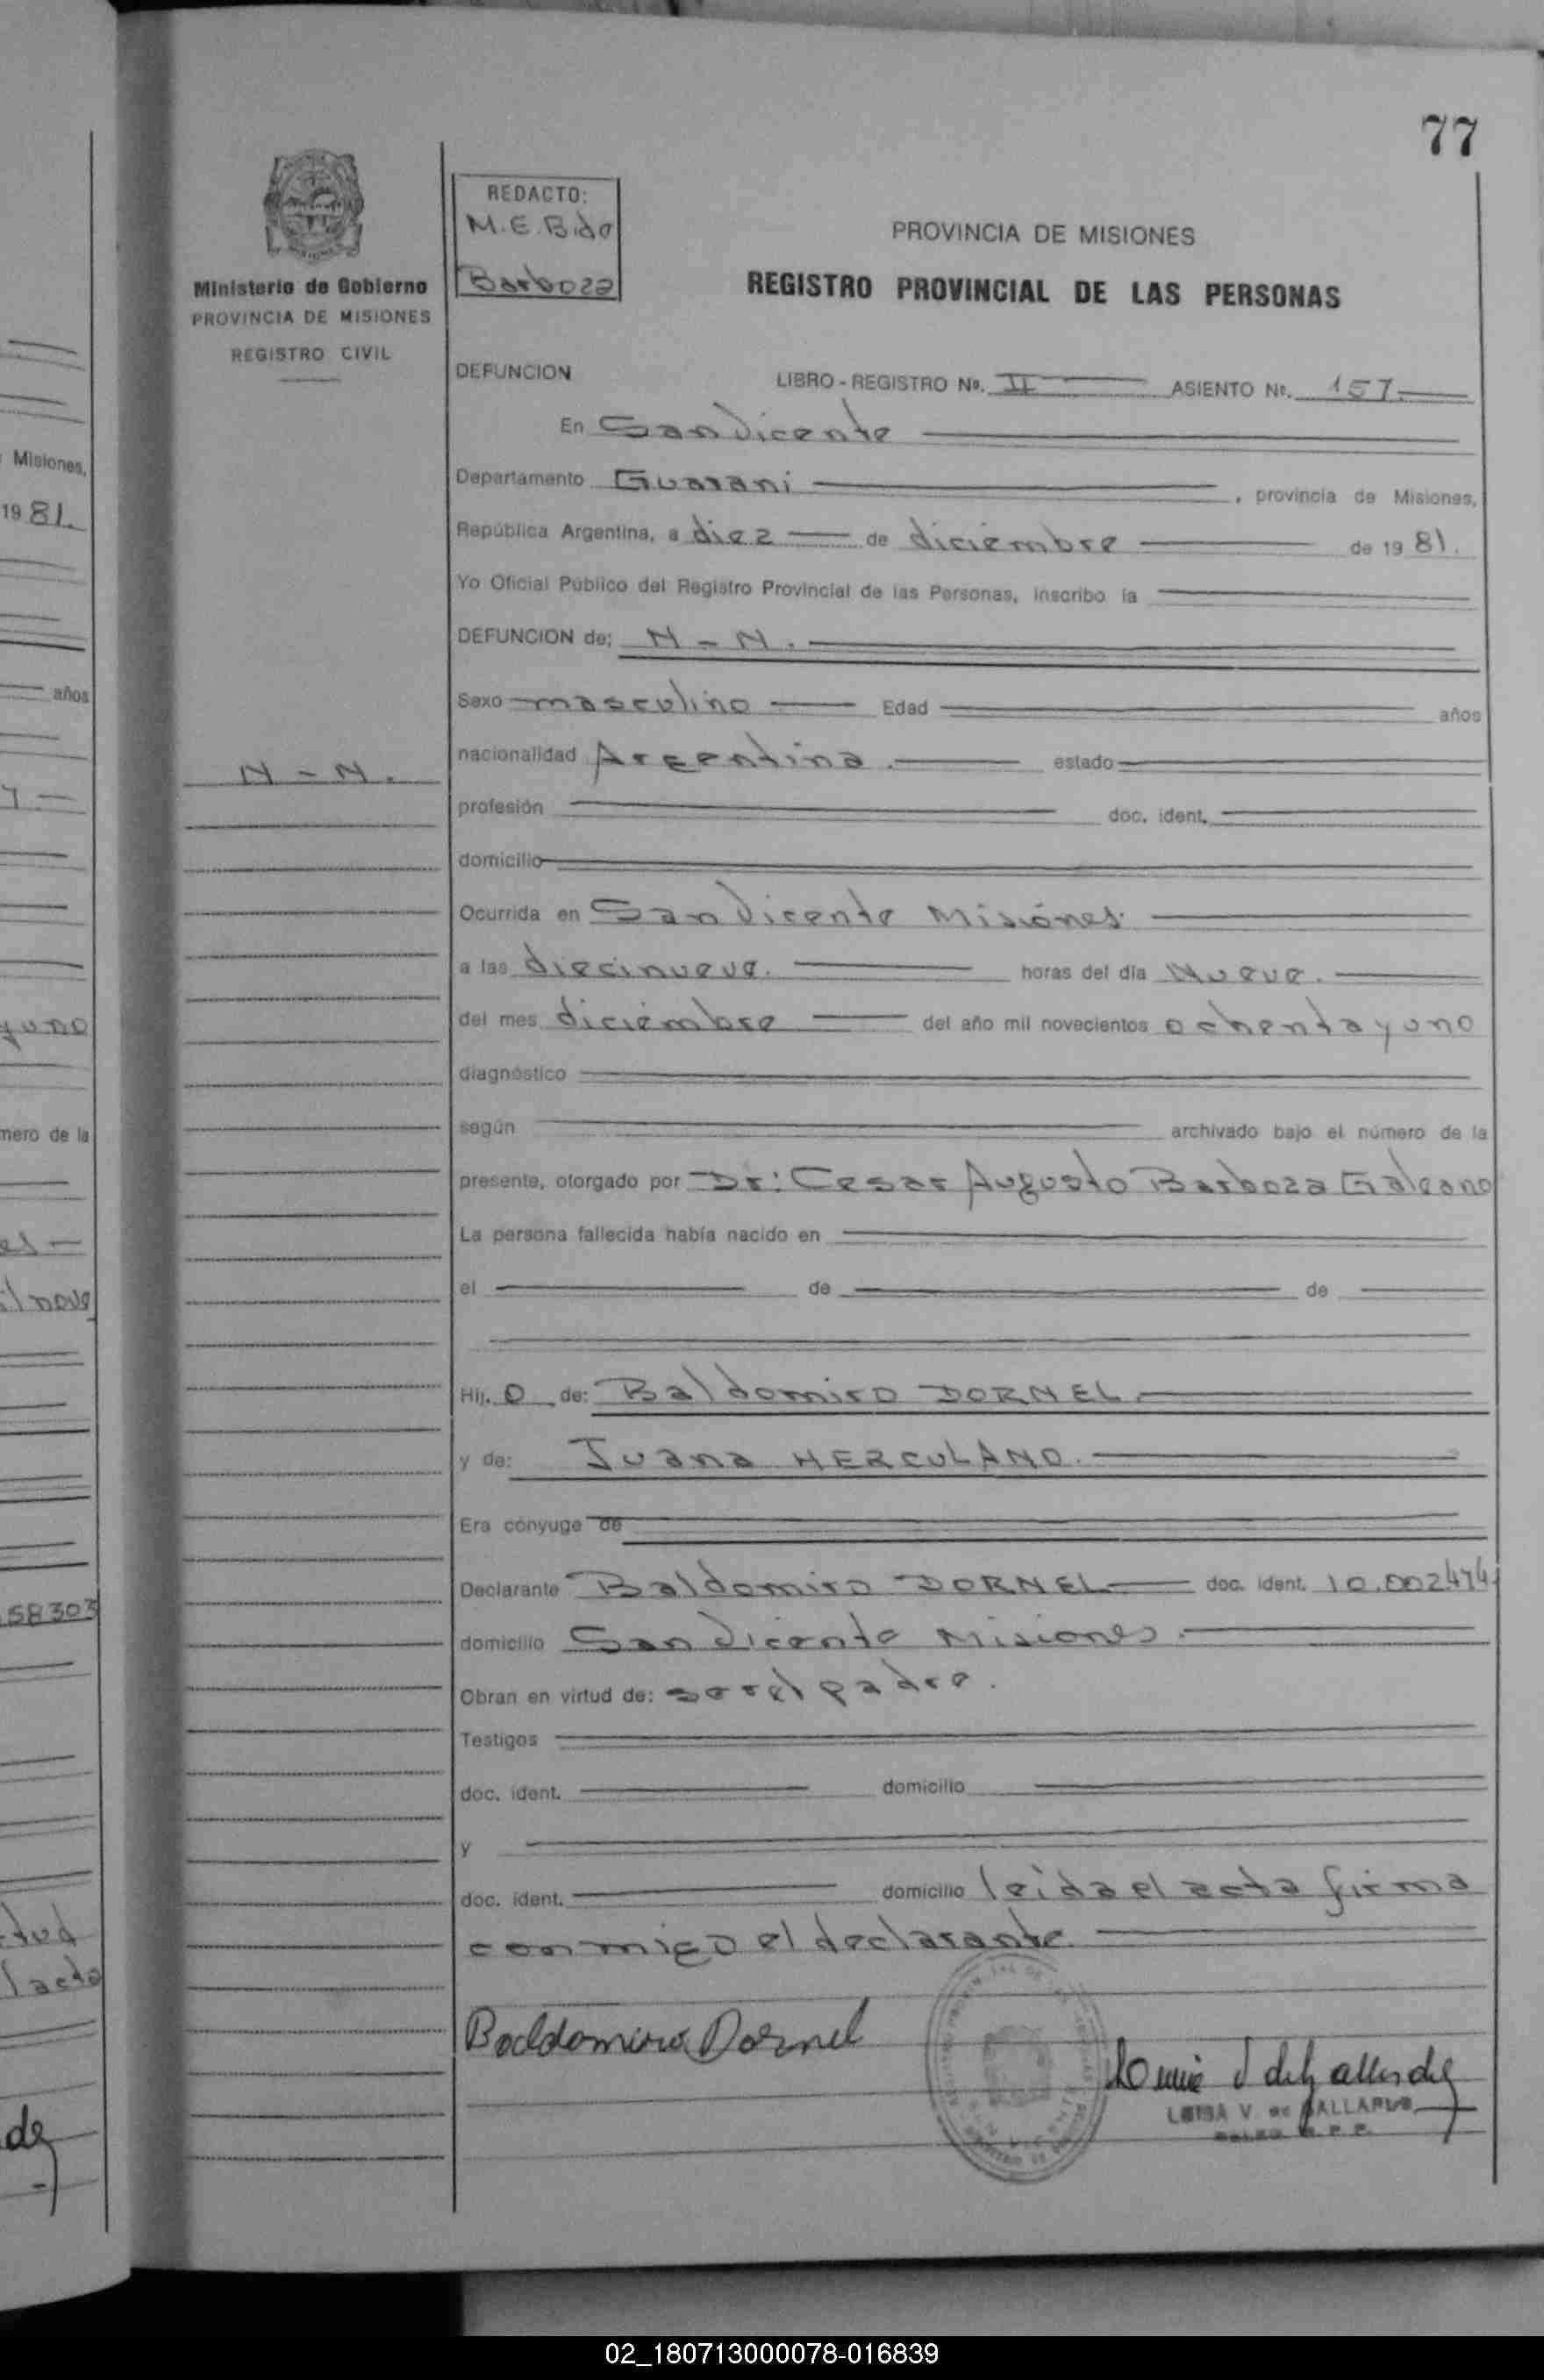 77
REDACTO:
M.E. Bido
Barboza
Ministerio de Gobierno
PROVINCIA DE MISIONES
REGISTRO CIVIL
PROVINCIA DE MISIONES
REGISTRO PROVINCIAL DE LAS PERSONAS
DEFUNCION LIBRO - REGISTRO No. II ASIENTO No. 157
En San Vicente
Departamento Guarani, provincia de Misiones,
República Argentina, a diez de diciembre de 19 81.
Yo Oficial Público del Registro Provincial de las Personas, inscribo la
DEFUNCION de: N - N.
Sexo masculino Edad años
N - N.
nacionalidad Argentina. estado
profesión doc. ident.
domicilio
Ocurrida en San Vicente Misiónes
a las diecinueve. horas del día Nueve.
del mes diciembre del año mil novecientos ochenta y uno
diagnóstico
según archivado bajo el número de la
presente, otorgado por Dr: Cesar Augusto Barboza Galeano
La persona fallecida había nacido en
el de de
Hij. o de: Baldomiro DORNEL
y de: Juana HERCULANO.
Era cónyuge de
Declarante Baldomiro DORNEL doc. ident. 10.002474
domicilio San Vicente Misiones.
Obran en virtud de: ser el padre.
Testigos
doc. ident. domicilio
y
doc. ident. domicilio leida el acta firma
conmigo el declarante
Baldomiro Dornel
LUISA V. de GALLARDO
Misiones,
19 81.
años
y uno
mero de la
58303
de
02_180713000078-016839